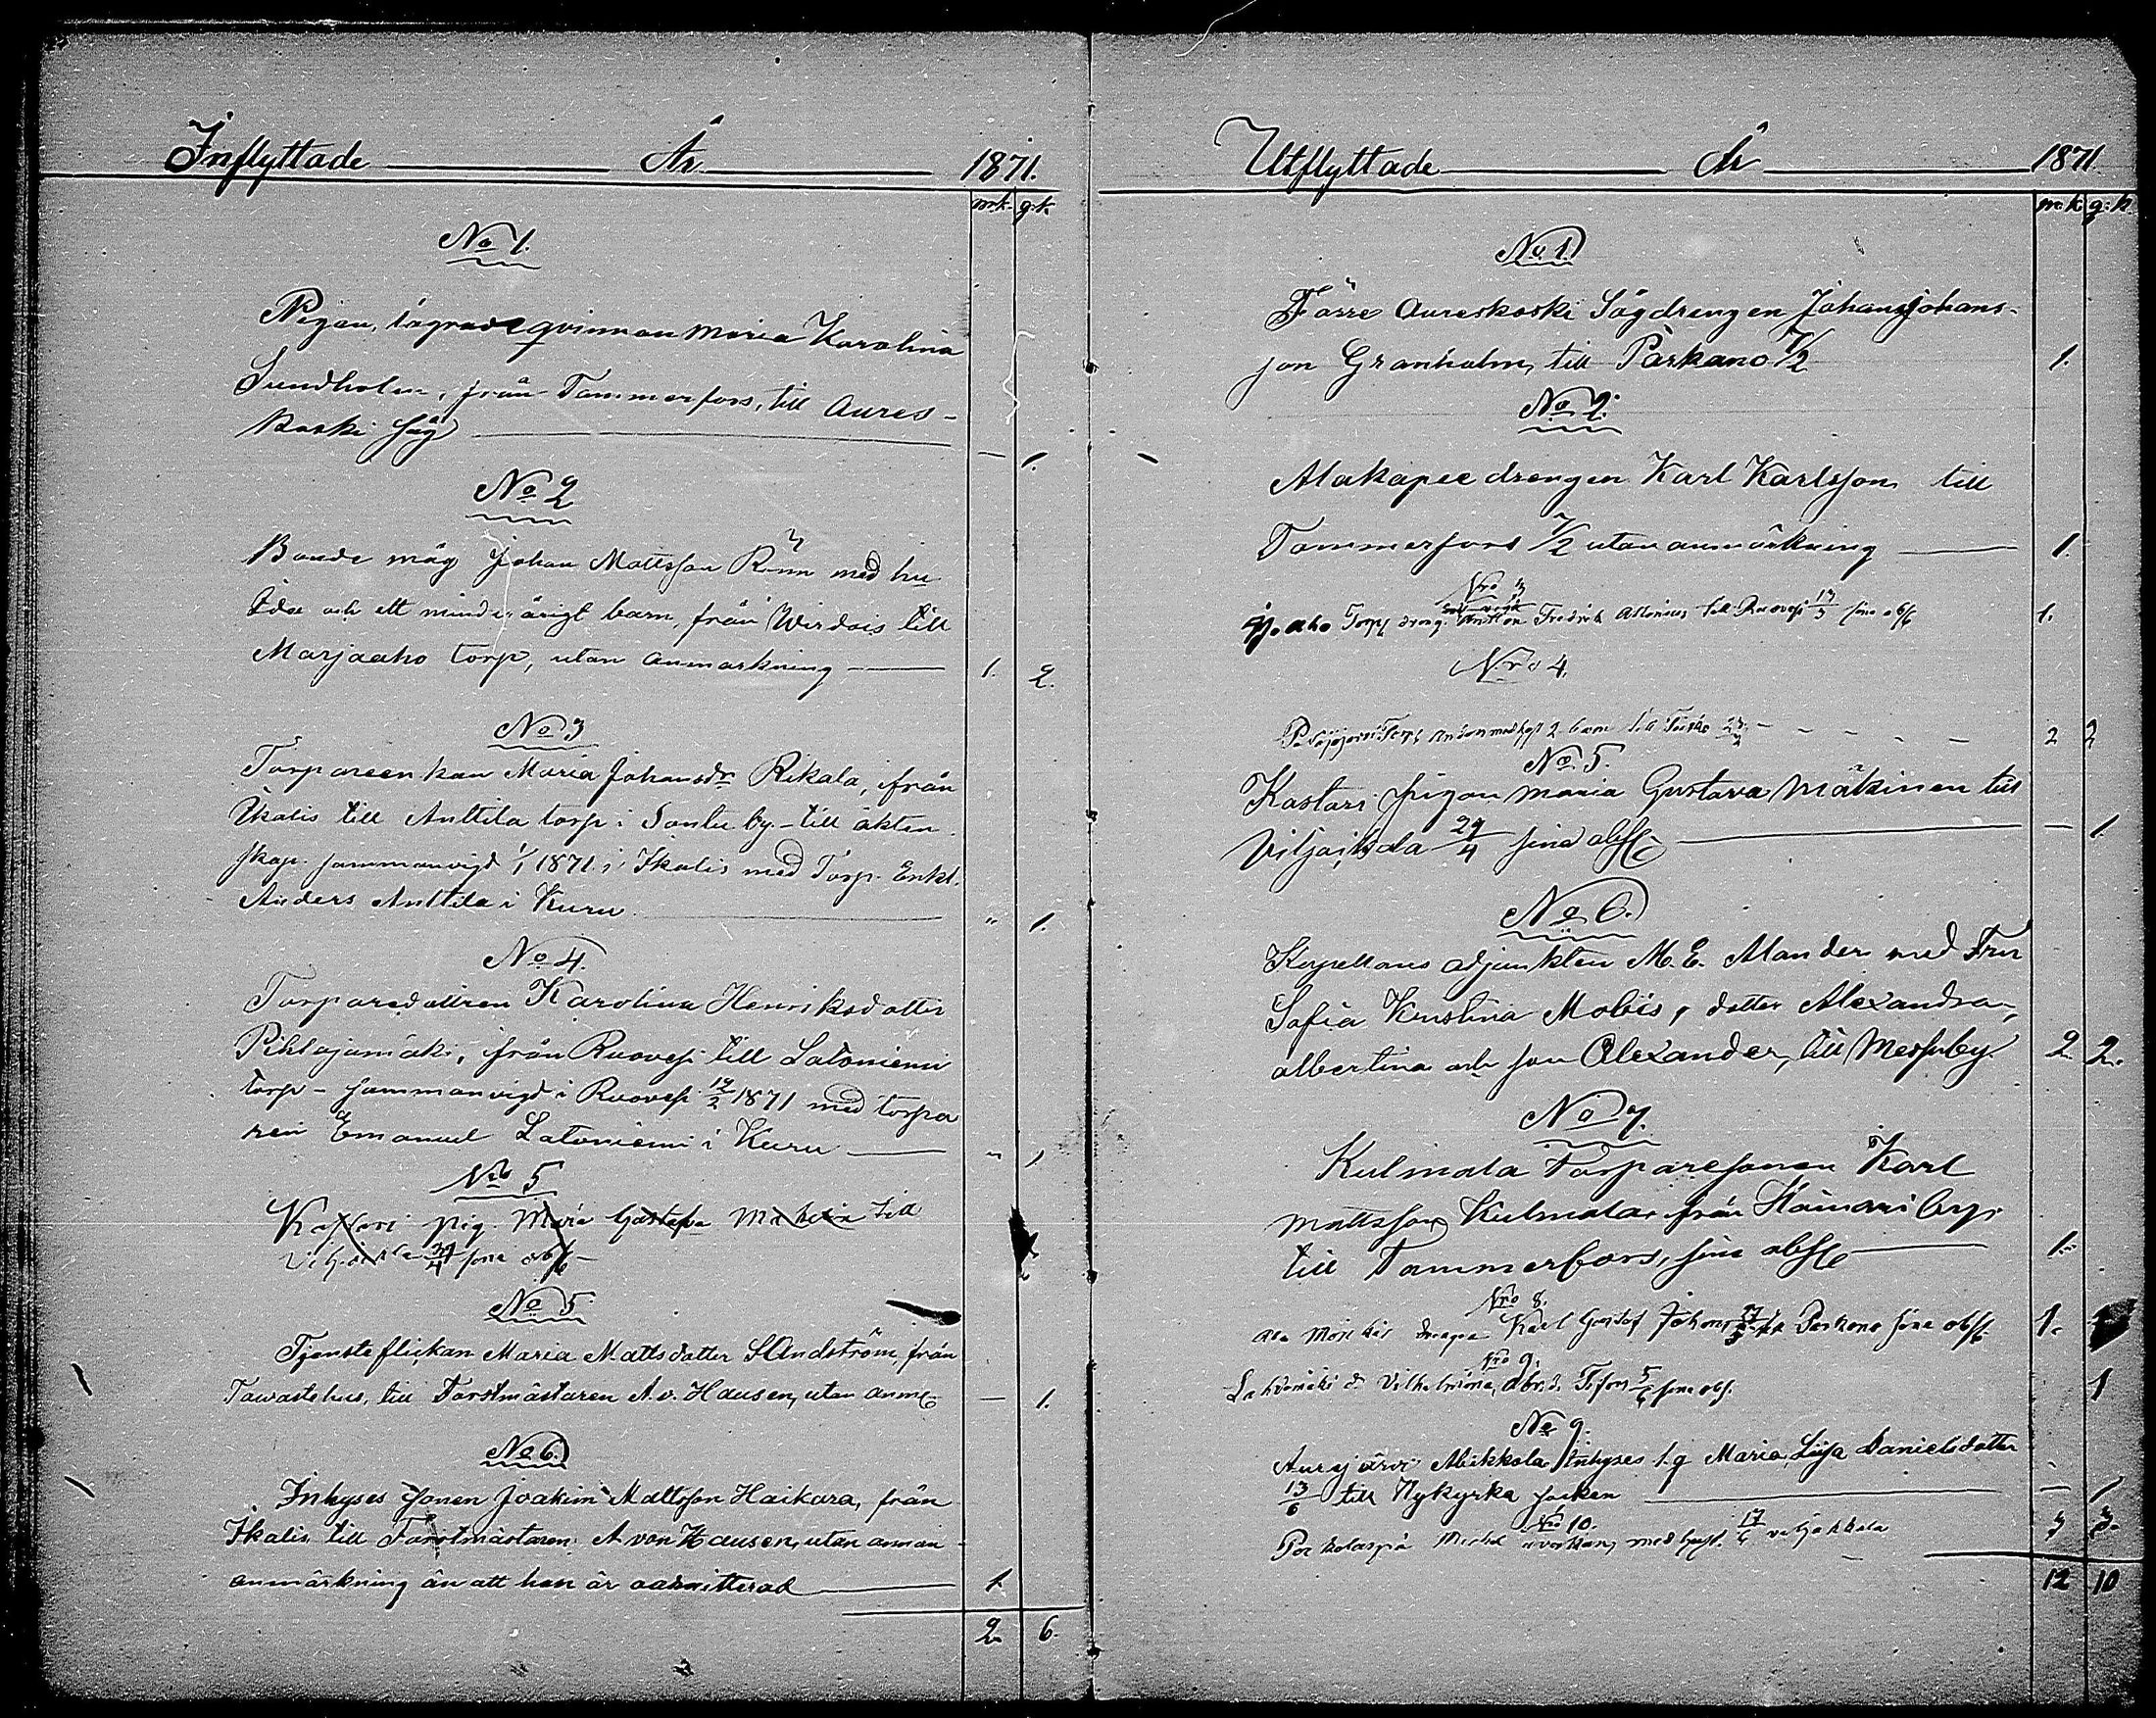 Inflyttade År 1871.
mk. q.k.
No 1.
Pigan, lägradeqvinnan Maria Karolina
Sundholm, från Tammerfors, till Aures-
koski såg — 1.
No 2
Bonde måg Johan Mattsson Rinn med hu
och ett minderårigt barn, från Wirdois till
Marjaaho torp, utan anmärkning 1. 2.
No 3
Torpareenkan Maria Johansdr Rikala, från
Ikalis till Anttila torp i by – till äkten
skap sammanvigd 1/1 1871 i Ikalis med Torp. Enkl.
Anders Anttila i Kuru " 1.
No 4.
Torparedottren Karolina Henriksdotter
Pihlajamäki, från Ruovesi till Latoniemi
torp – sammanvigd i Ruovesi 12/2 1871 med torpa
ren Emanuel Latoniemi i Kuru " 1
Nro 5
Kastari pig. Maria Gustafva Mäkinen till
29/4 sine obs
No 5
Tjensteflickan Maria Mattsdotter Sandström, från
Tawastehus, till Forstmästaren A. v. Hausen, utan anm — 1.
No 6.
Inhyses Sonen Joakim Mattsson Haikara, från
Ikalis till Forstmästaren A von Hausen, utan annan
anmärkning än att han är admitterad 1.
2. 6.
Utflyttade År 1871
m:k q:k
No 1.
Förre Aureskoski Sågdrengen Johan Johans-
son Granholm, till Parkano 7/2 1.
No 2.
Alakapee drengen Karl Karlsson till
Tammerfors 7/2 utan anmärkning 1.
Nro 3
aho Torp dreng. Anton Fredrik till Ruovesi 13/3 sine obs 1.
Nro 4.
Torp. med hust 2 barn till 2 2
No 5.
Kastari pigan Maria Gustava Mäkinen till
Viljakkala 29/4 sine obs — 1.
No 6.
Kapellans adjunkten M. E. Alander med Fru
Sofia Kristina Moliis, dotter Alexandra
Albertina och son Alexander, till Messuby 2. 2.
No 7.
Kulmala Torparesonen Karl
Mattsson Kulmala från Hainari by
till Tammerfors, sine obs 1.
Nro 8.
drengen Karl Gustaf Johans Parkano sine obs 1.
Nro 9.
Vilhelmina, T:fors 5/6 sine obs. 1
No 9.
Aurejärvi Mikkola Inhyses l.q Maria Lisa Danielsdotter
13/6 till Nykyrka socken — 1
Nro 10.
Michel med hust. 17/6 3 3.
12 10